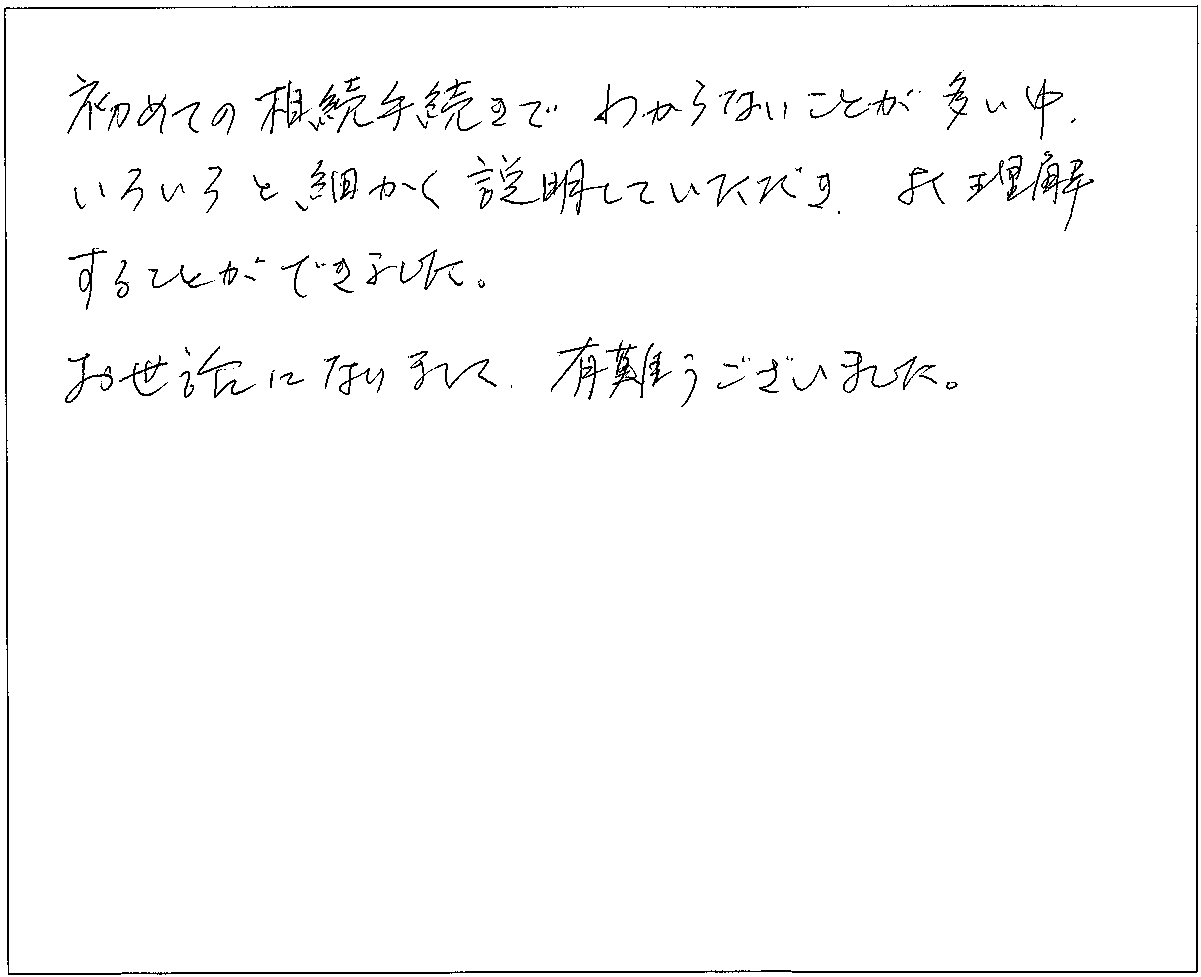 初めての相続手続きで わからないことが多い中、
いろいろと細かく説明していただき、よく理解
することができました。
お世話になりまして、有難うございました。